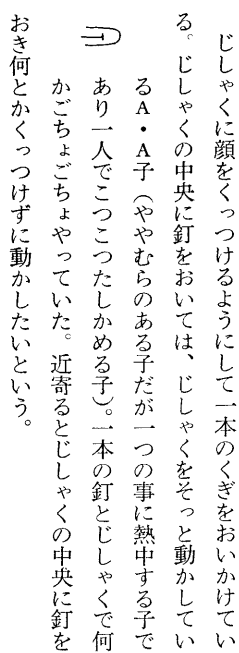 じしゃくに顔をくっつけるようにして一本のくぎをおいかけてい
る。じしゃくの中央に釘をおいては、じしゃくをそっと動かしてい
るA・A子（ややむらのある子だが一つの事に熱中する子で
あり一人でこつこつたしかめる子）。一本の釘とじしゃくで何
かごちょごちょやっていた。近寄るとじしゃくの中央に釘を
おき何とかくっつけずに動かしたいという。